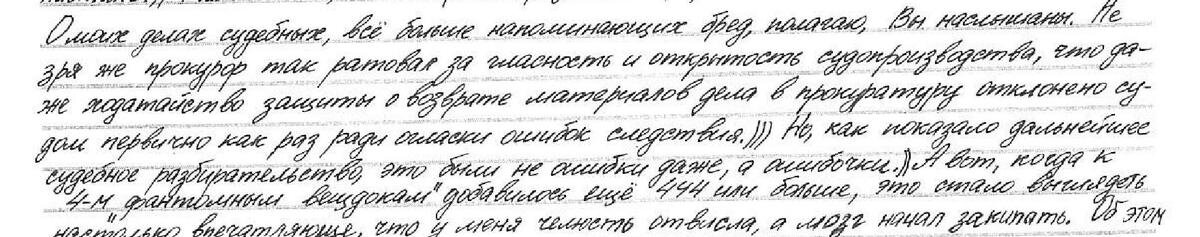 О моих делах судебных, всё больше напоминающих бред, полагаю, Вы наслышаны. Не
зря же прокурор так ратовал за гласность и открытость судопроизводства, что да-
же ходатайство защиты о возврате материалов дела в прокуратуру отклонено су-
дом первично как раз ради огласки ошибок следствия.))) Но, как показало дальнейшее
судебное разбирательство, это были не ошибки даже, а ошибочки.)) А вот, когда к
4-м „фантомным вещдокам" добавилось ещё 444 или больше, это стало выглядеть
настолько впечатляюще, что у меня челюсть отвисла, а мозг начал закипать. Об этом